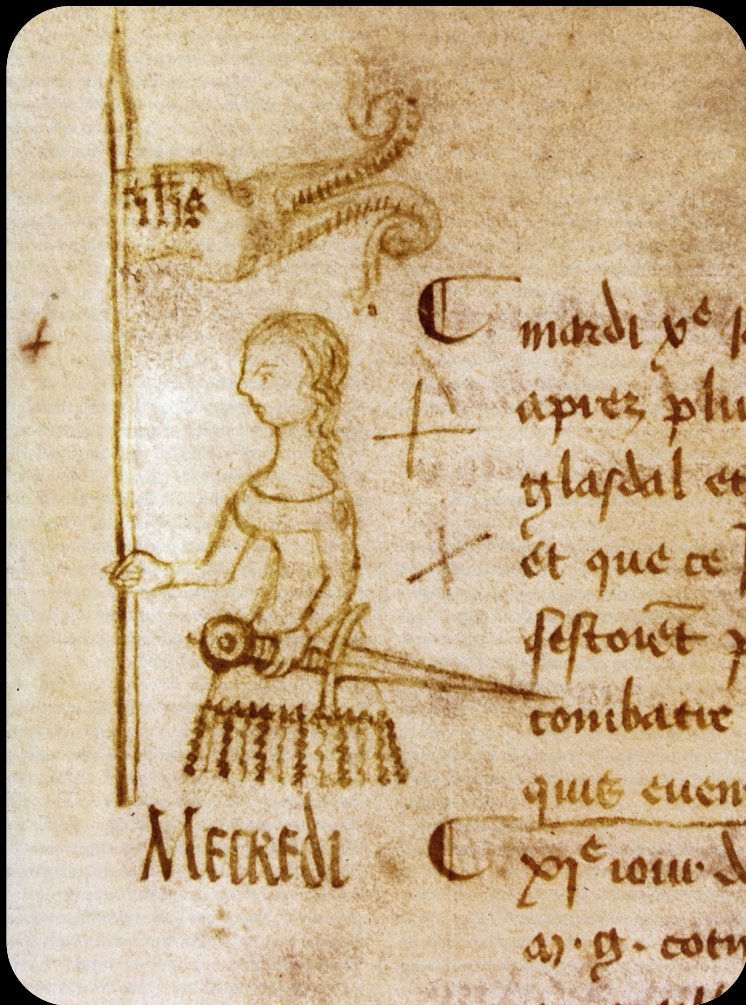 ihs
mardi xe
aprez plu
glasdal et
Et que ce
sestoiēt p
combatre
quis euen
Mecredi
xje iour d
m. g. cotn